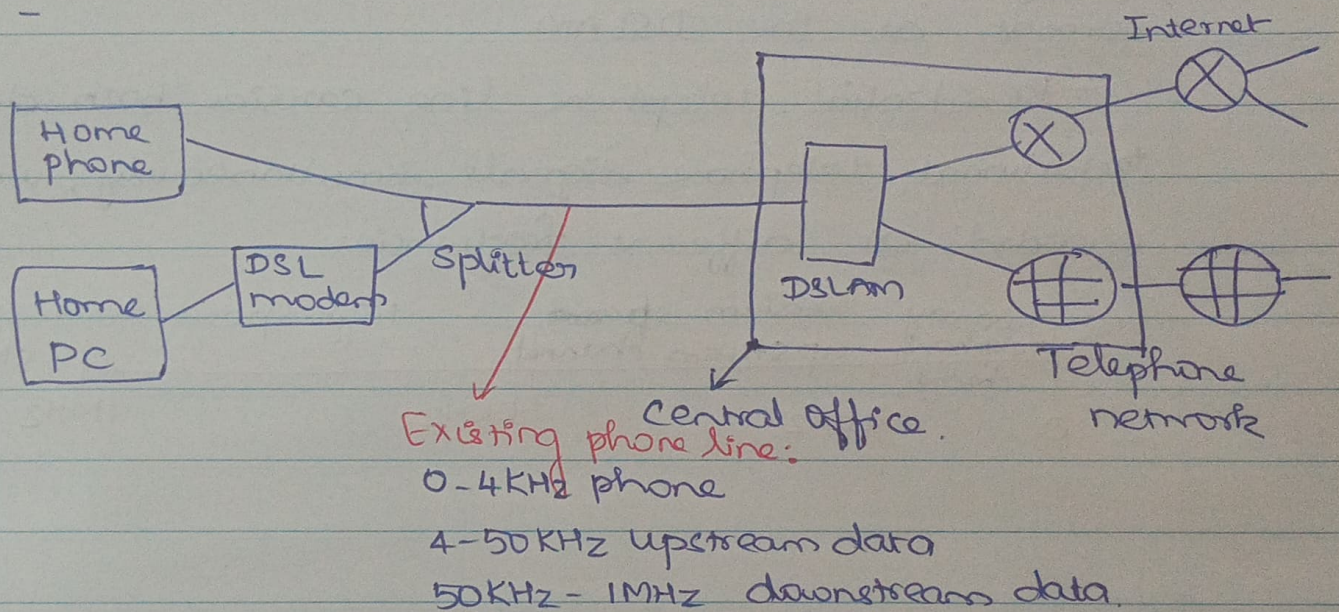 Internet
Home
phone
Splitter
DSL
modem
Home
PC
DSLAM
Telephone
network
central office.
Existing phone line:
0-4KHz phone
4-50KHz upstream data
50KHz - 1MHz downstream data.